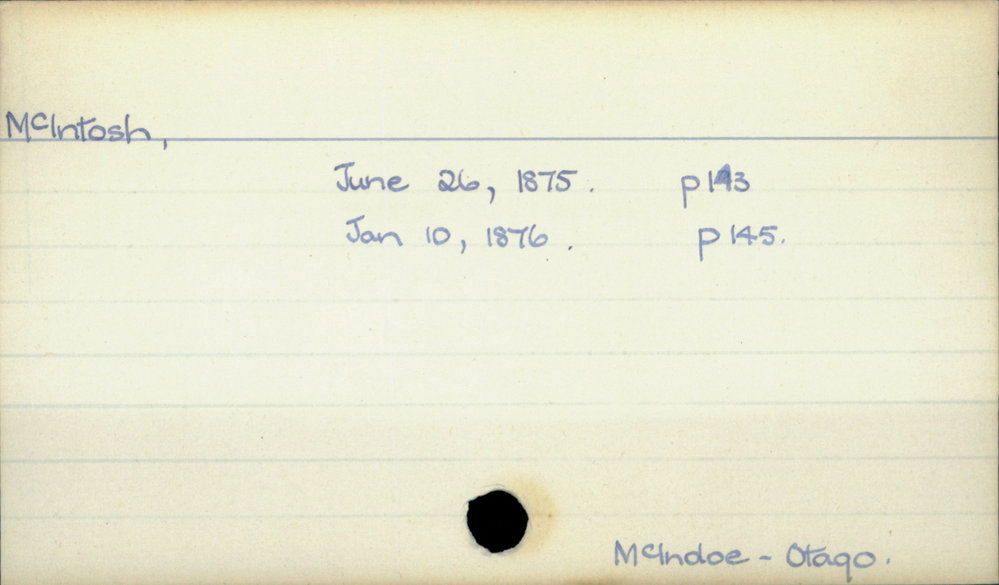 McIntosh,
June 26, 1875. p143
Jan 10, 1876. p145.
McIndoe - Otago.